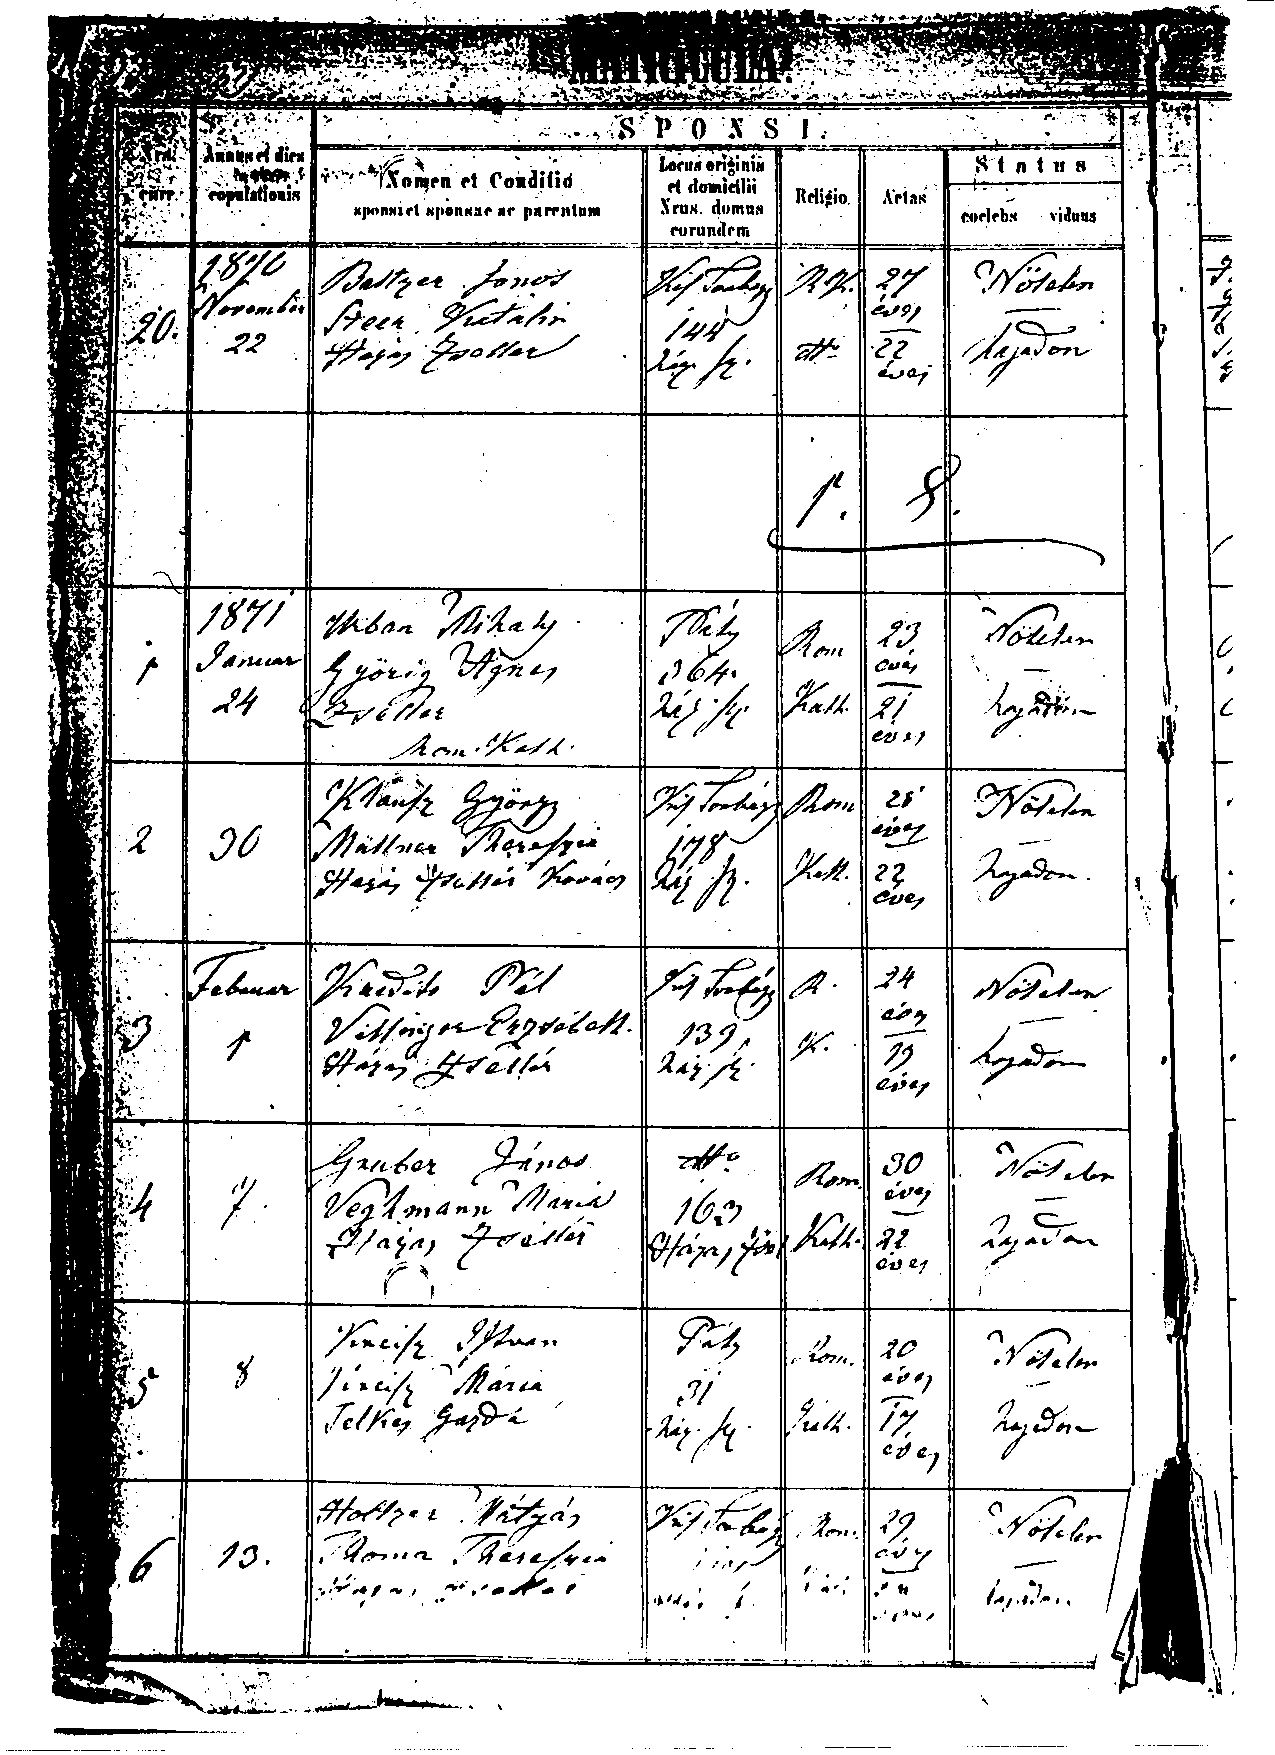 MATRICULA
SPONSI.
Nrus curr.
Annus et dies copulationis
Nomen et Conditio
sponsi et sponsae ac parentum
Locus originis
et domicilii
Nrus. domus
eorundem
Religio.
Aetas
Status
coelebs viduus
20.
1870
November
22
Baltzer János
Katalin
Házas Zsellér
Kis Torbágy
144
ház sz.
R. K.
dtto
27
éves
22
éves
Nőtelen
hajadon
1
1871
Januar
24
Urban Mihaly
György Agnes
Zsellér
Rom. Kath.
Páty
364.
ház. sz.
Rom
Kath.
23
éves
21
éves
Nőtelen
hajadon
2
30
Klausz György
Mattner Thereszia
Házas Zsellér Kovács
Kis Torbágy
178
ház sz.
Rom
Kath.
éves
22
éves
Nőtelen
hajadon.
3
Februar
1
Pál
Erzsébeth.
Házas Zsellér
Kis Torbágy
139.
ház. sz.
R.
K.
24
éves
19
éves
Nőtelen
hajadon
4
7.
Gruber János
Veghmann Maria
Házas Zsellér
dtto
163
Rom.
Kath.
30
éves
22
éves
Nőtelen
hajadon
5
8
Kreisz Istvan
Maria
Telkes Gazda
Páty
31
ház. sz.
Rom.
Kath.
20
éves
17
éves
Nőtelen
hajadon
6
13.
Holtzer Mátyás
Thoma Thereszia
Házas Zsellér
Kis Torbágy
Rom.
29
éves
Nőtelen
hajadon